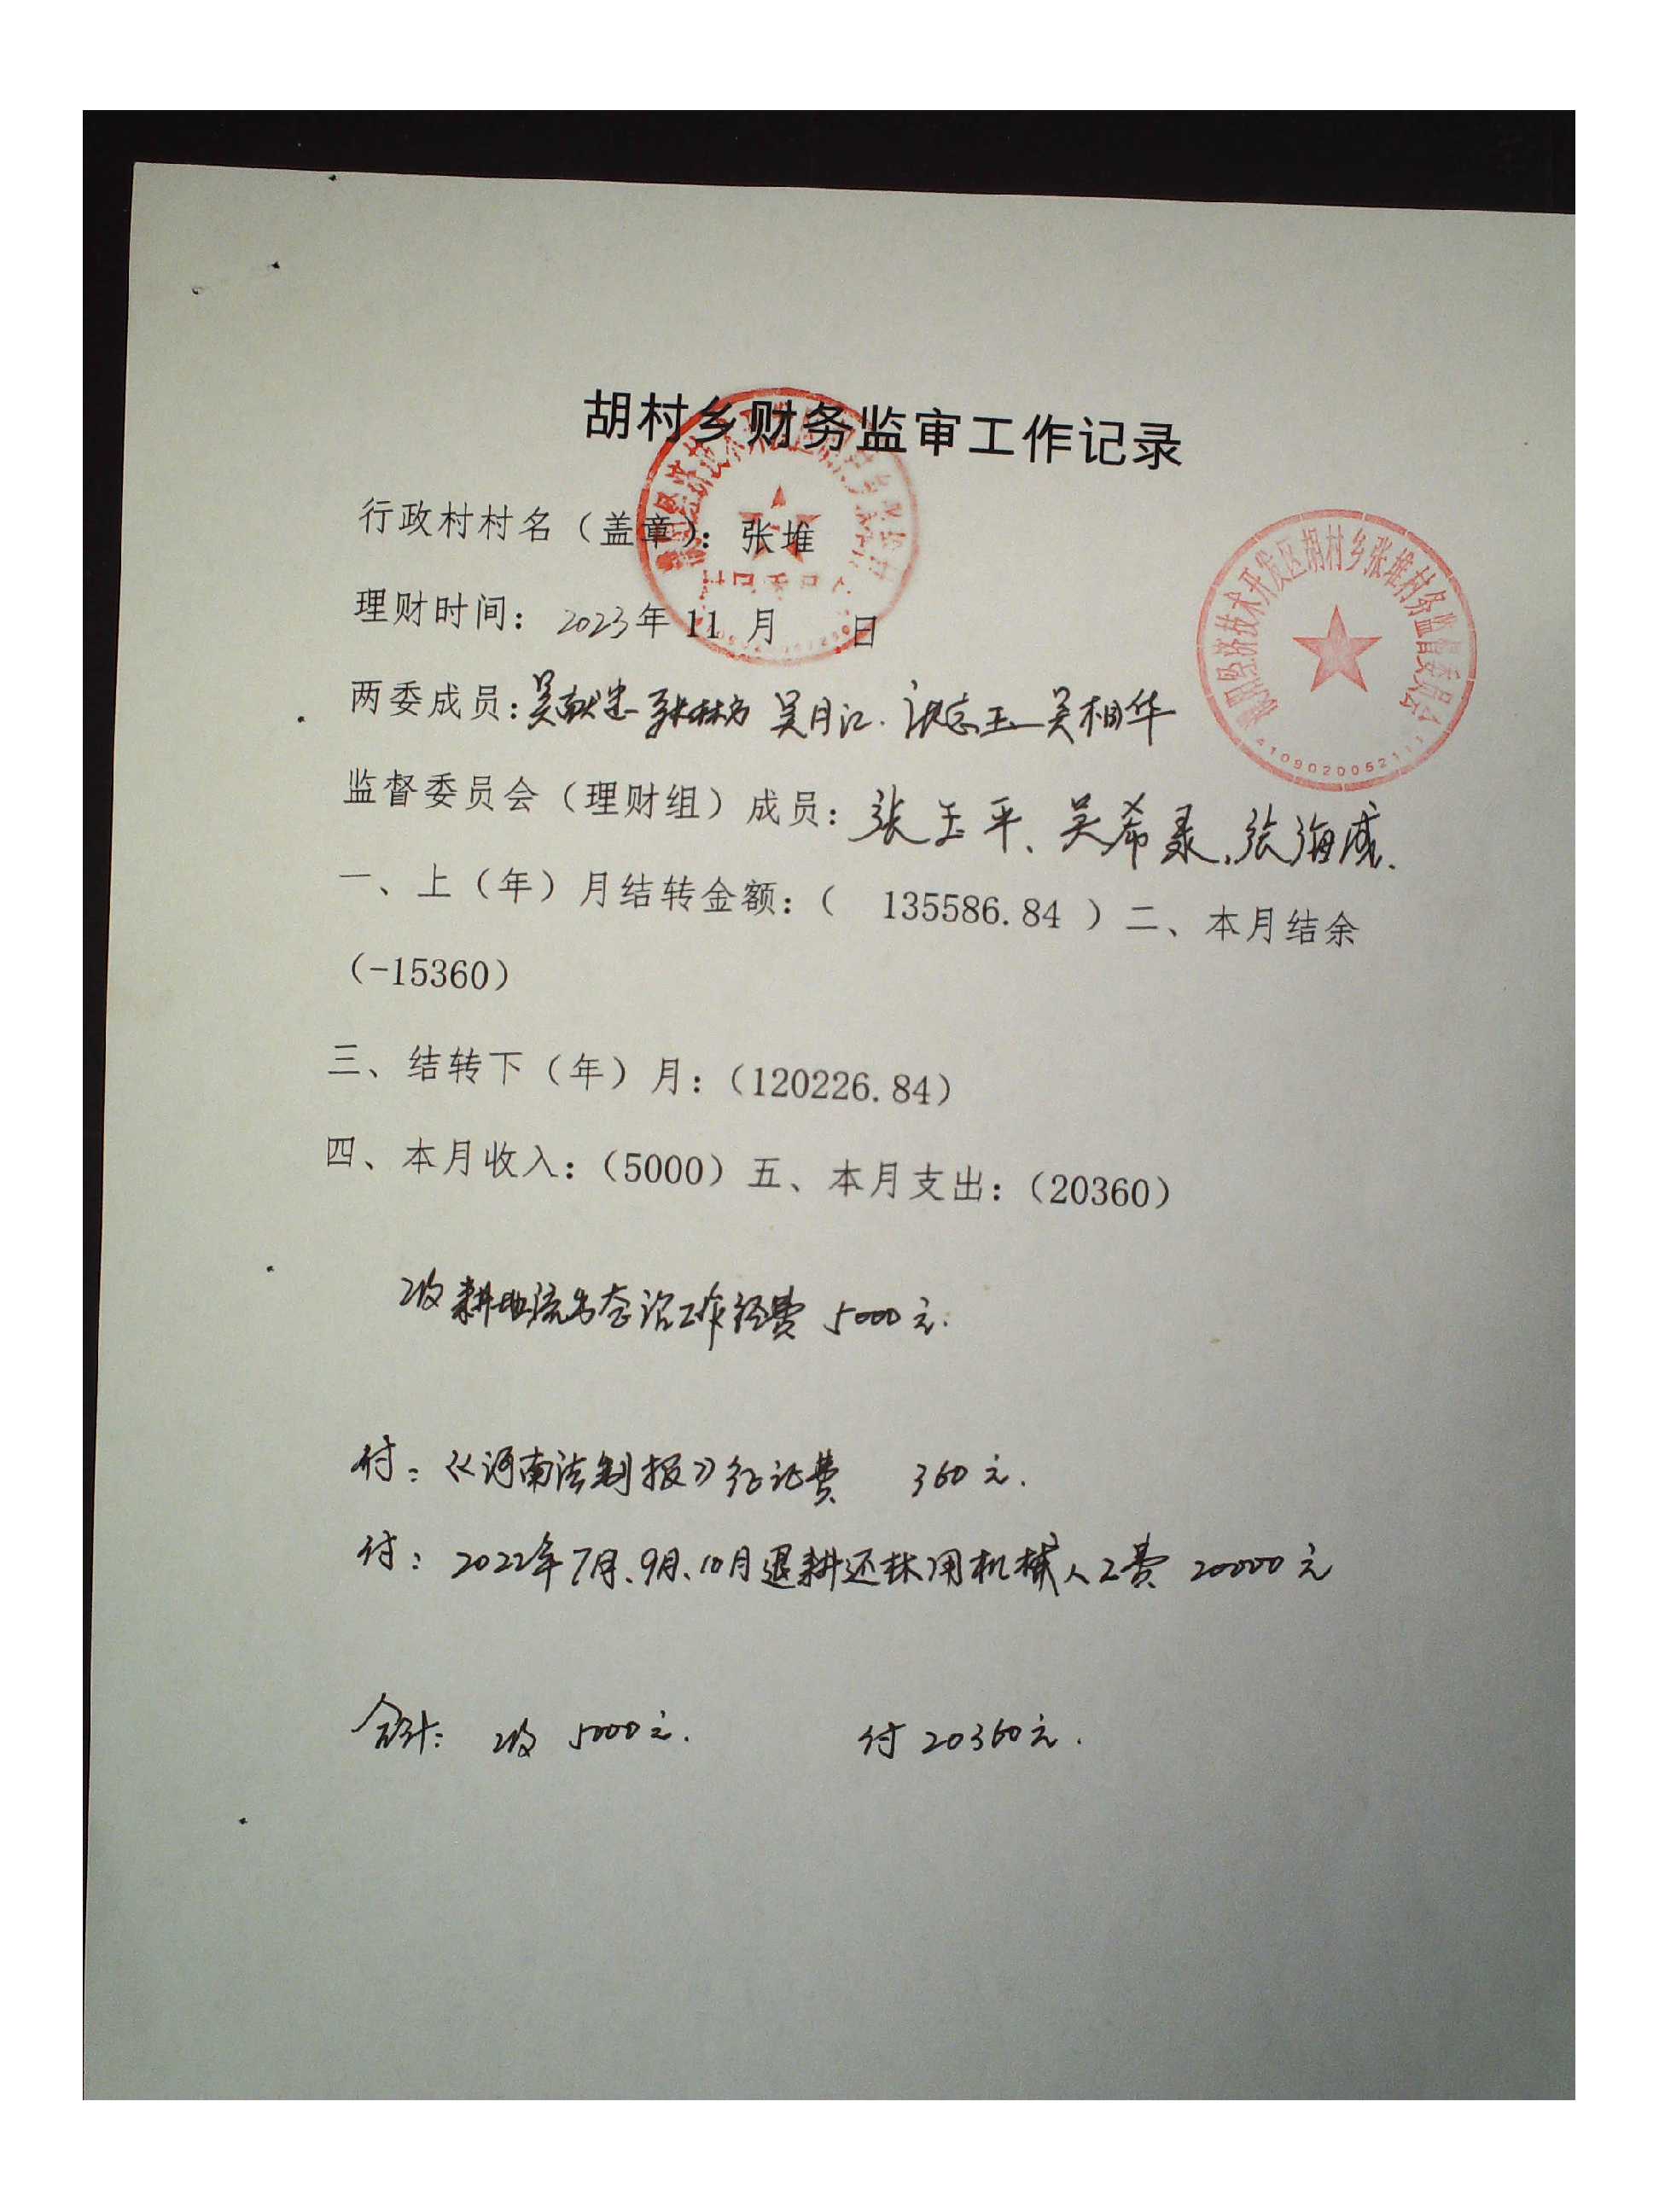 胡村乡财务监审工作记录
行政村村名（盖章）：张堆
理财时间：2023年11月 日
两委成员：吴献忠 张林方 吴月江. 沈志玉 吴相华
监督委员会（理财组）成员：张玉平、吴希录、张海威.
一、上（年）月结转金额：（ 135586.84 ）二、本月结余
（-15360）
三、结转下（年）月：（120226.84）
四、本月收入：（5000）五、本月支出：（20360）
收耕地流出整治工作经费 5000元.
付：《河南法制报》征订费 360元.
付：2022年7月、9月、10月退耕还林用机械人工费 20000元
合计： 收 5000元. 付 20360元.
濮阳经济技术开发区胡村乡张堆村务监督委员会